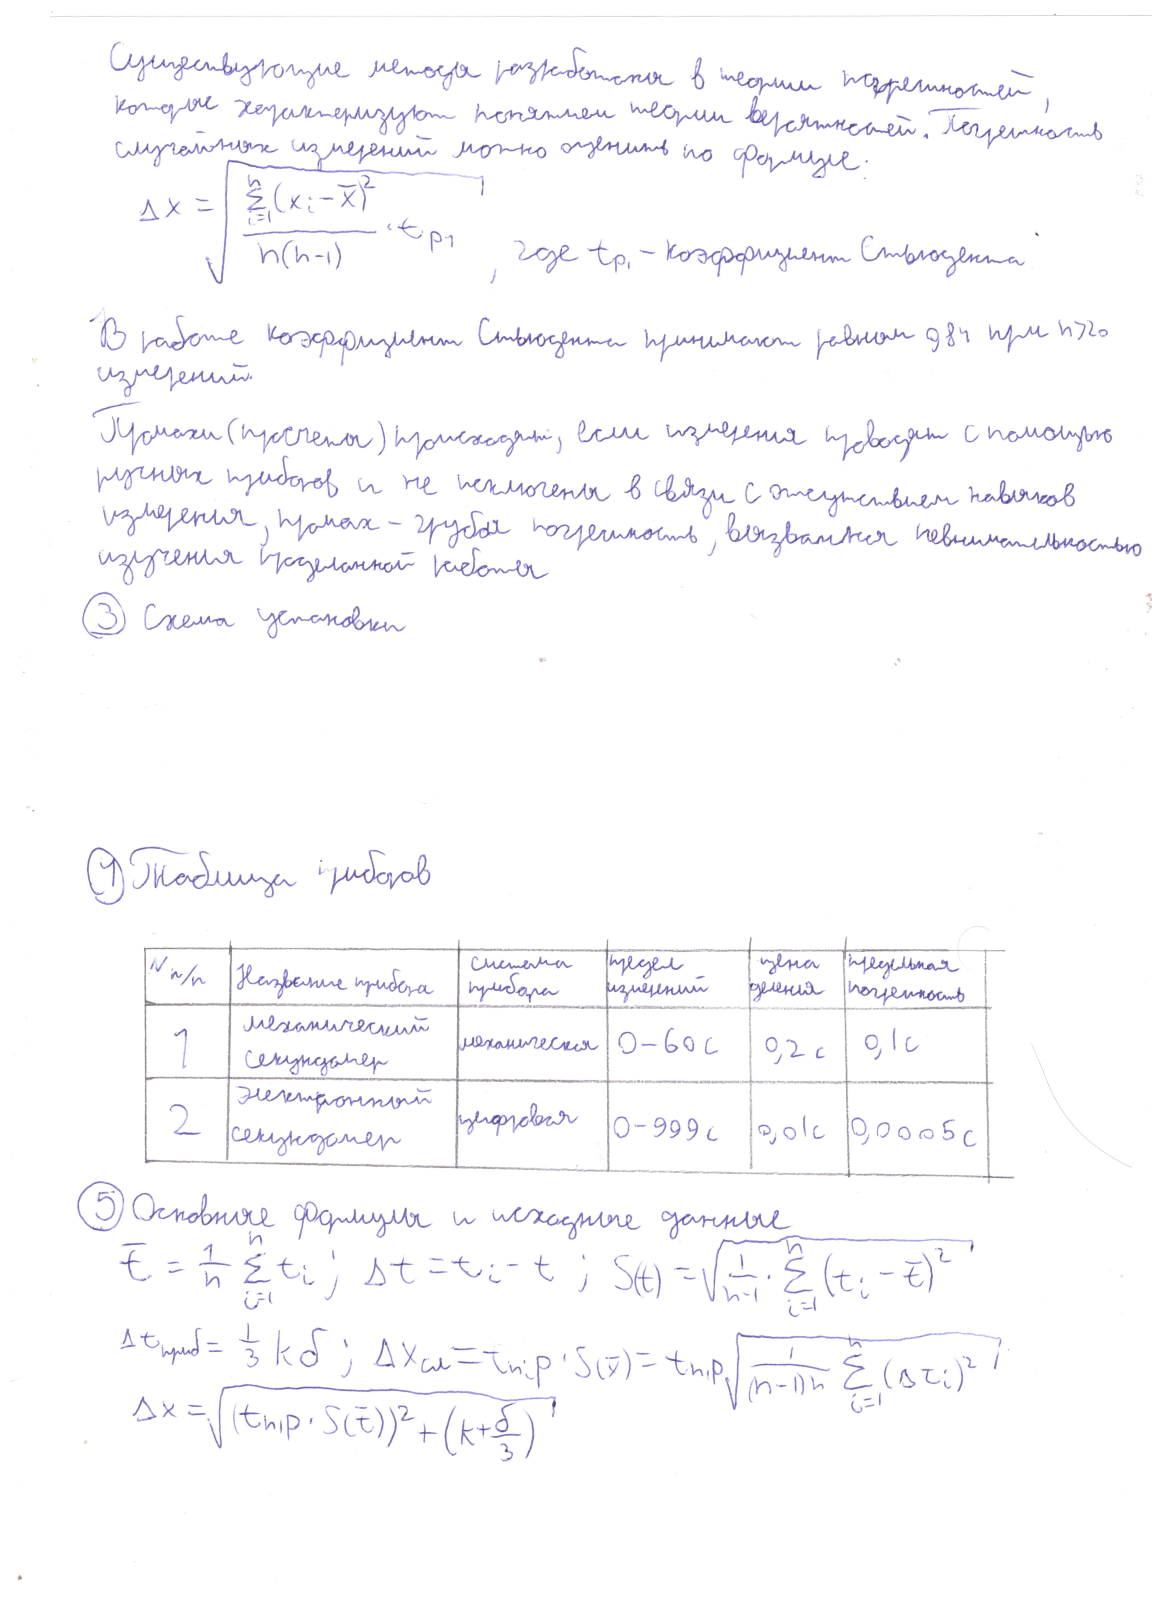 Существующие методы разработаны в теории погрешностей,
которые характеризуют понятием теории вероятностей. Погрешность
случайных измерений можно оценить по формуле:
Δx = √(∑ⁿᵢ₌₁(xᵢ-x̄)² / n(n-1)) · tp1, где tp1 - коэффициент Стьюдента
В работе коэффициент Стьюдента принимают равном 984 при n>20
измерений.
Промахи (просчеты) происходят, если измерения проводят с помощью
ручных приборов и не исключены в связи с отсутствием навыков
измерения, промах - грубая погрешность, вызванная невнимательностью
изучения проделанной работы
③ Схема установки
④ Таблица приборов
N п/п | Название прибора | система прибора | предел измерений | цена деления | предельная погрешность
1 | механический секундомер | механическая | 0-60с | 0,2с | 0,1с
2 | электронный секундомер | цифровая | 0-999с | 0,01с | 0,0005с
⑤ Основные формулы и исходные данные
t̄ = 1/n ∑ⁿᵢ₌₁ tᵢ; Δt = tᵢ - t; S(t) = √(1/(n-1) · ∑ⁿᵢ₌₁ (tᵢ - t̄)²)
Δtприб = 1/3 kδ; Δxсл = tn,p · S(x̄) = tn,p √(1/((n-1)n) ∑ⁿᵢ₌₁ (Δtᵢ)²)
Δx = √((tn,p · S(t̄))² + (k+δ/3))